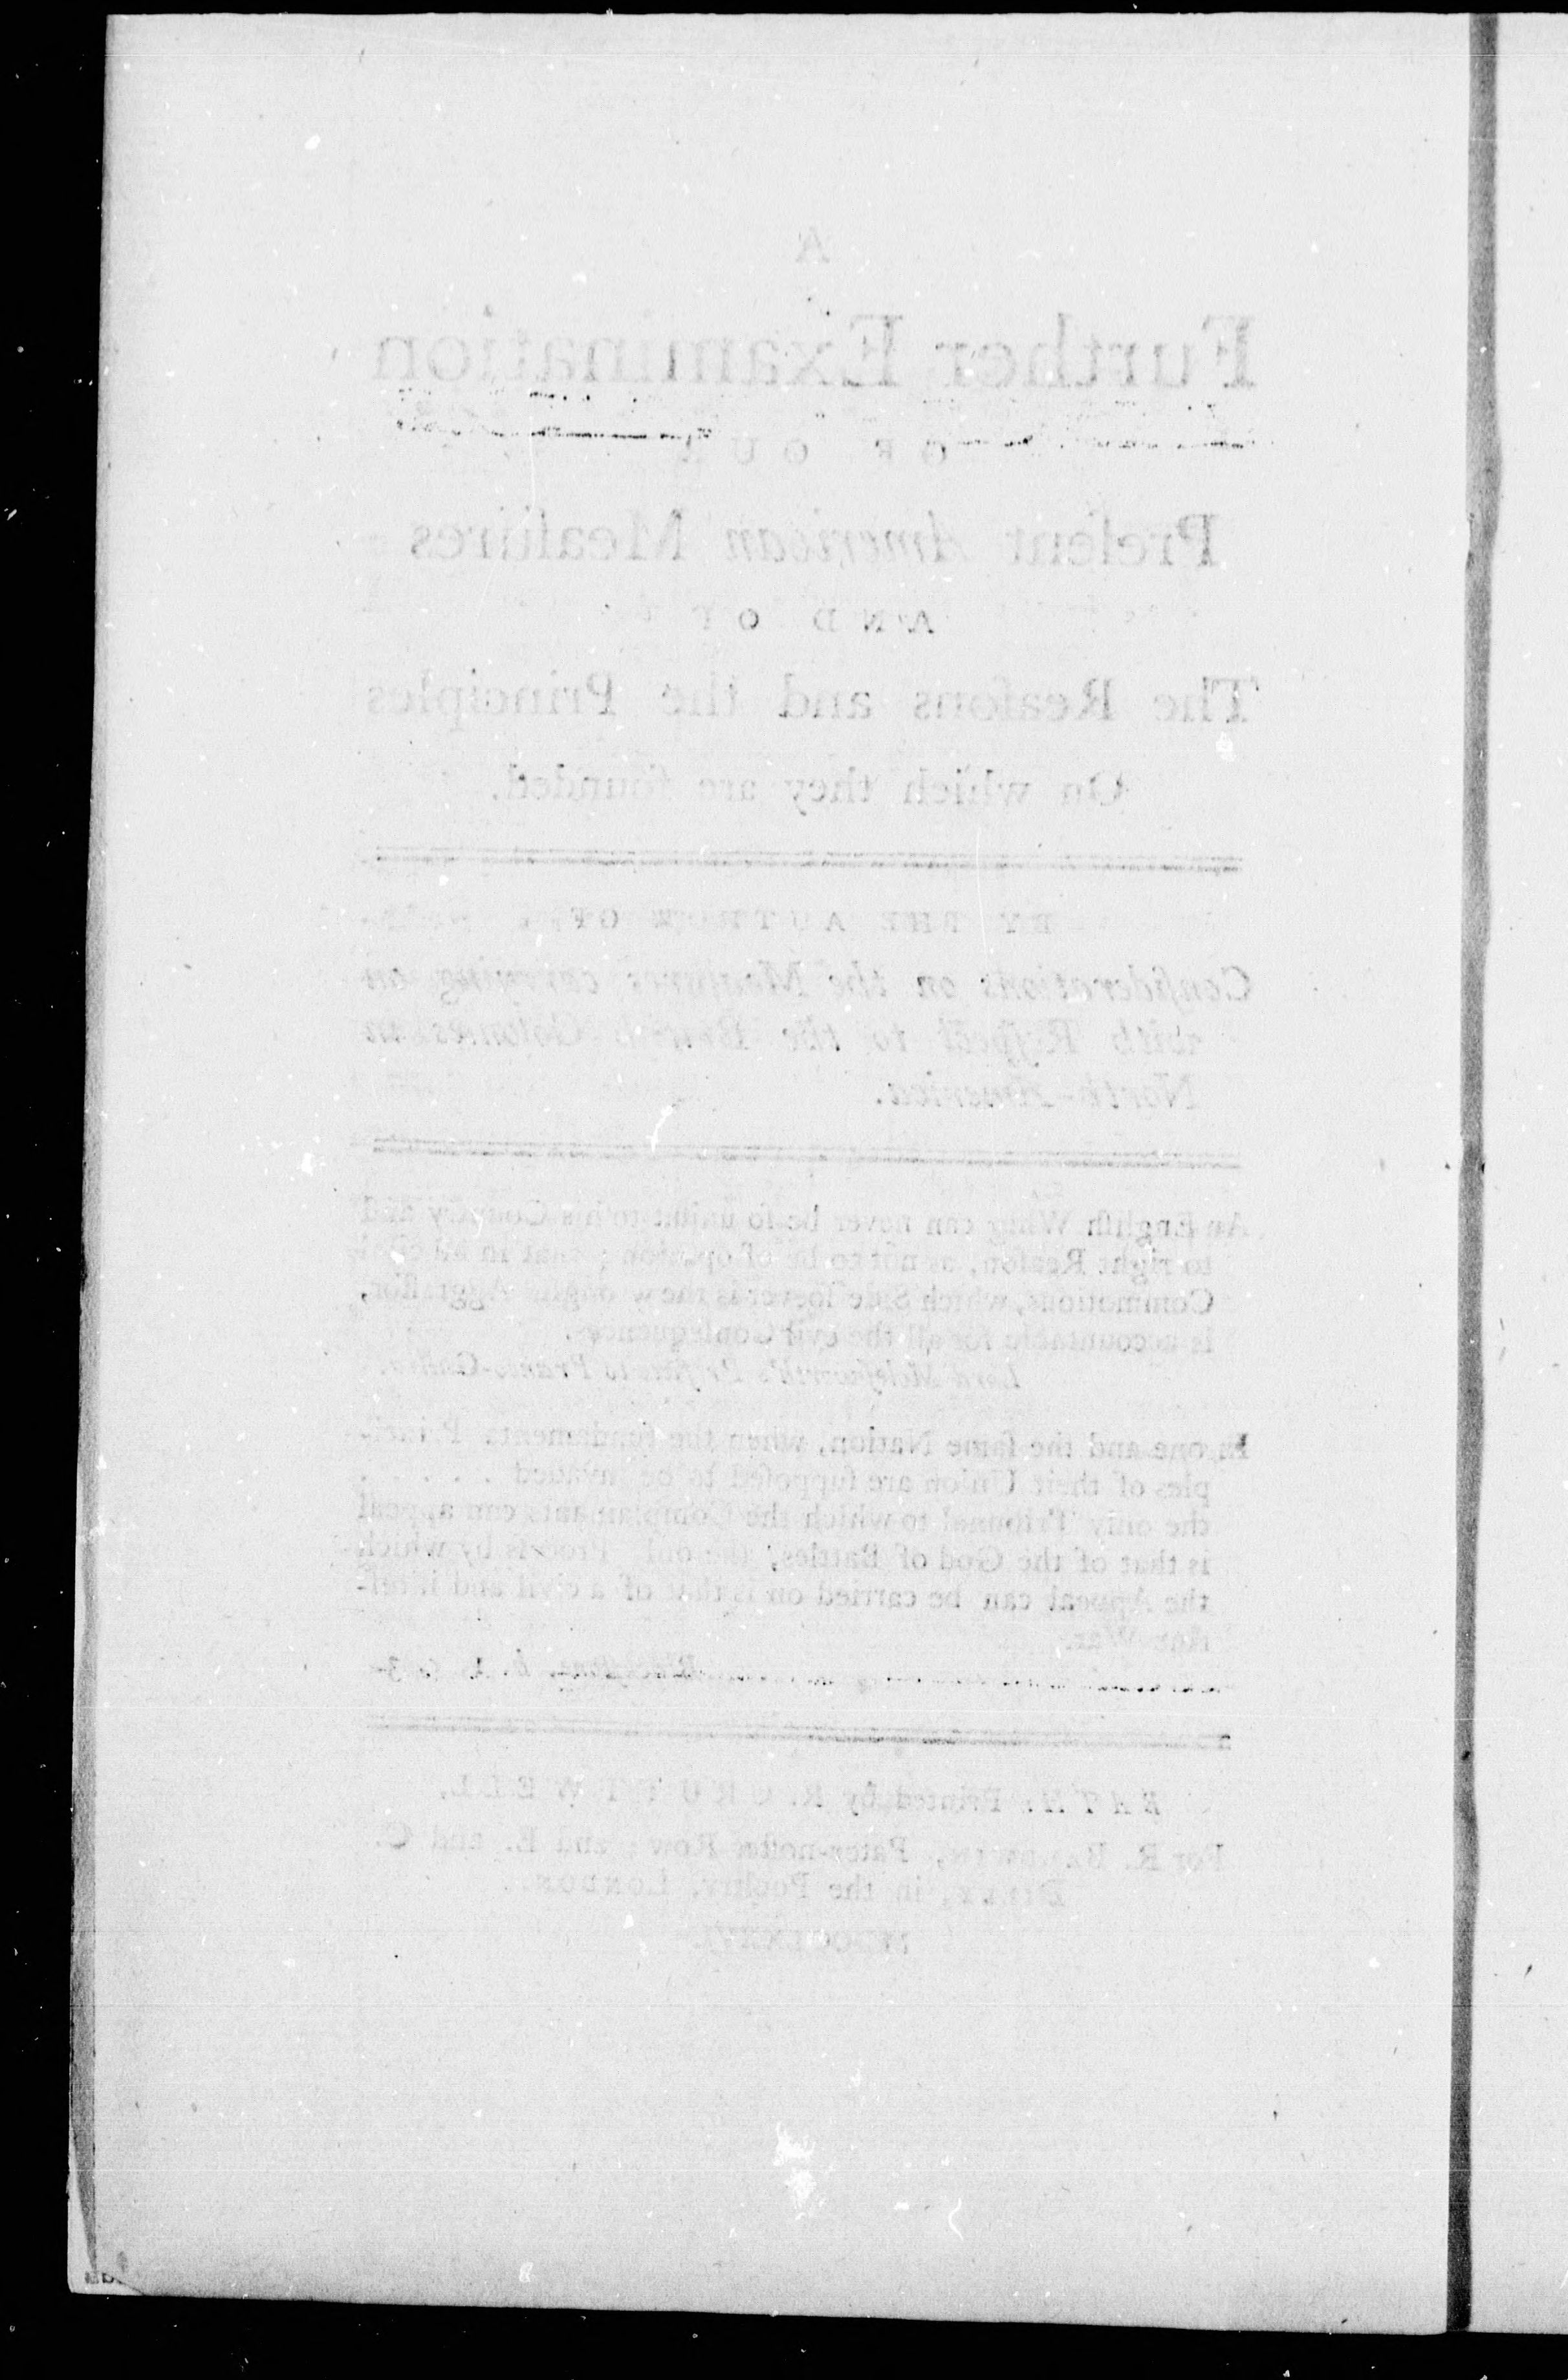 A
Further Examination
OF OUR
Preſent American Meaſures
AND OF
The Reaſons and the Principles
On which they are founded.
BY THE AUTHOR OF
Conſiderations on the Meaſures carrying on
with Reſpect to the Britiſh Colonies in
North-America.
An Engliſh Whig can never be ſo unjuſt to his Country and
to right Reaſon, as not to be of opinion, that in all civil
Commotions, which Side ſoever is the wrongful Aggreſſor,
is accountable for all the evil Conſequences.
Lord Moleſworth's Preface to Franco-Gallia.
In one and the ſame Nation, when the fundamental Princi-
ples of their Union are ſuppoſed to be invaded . . . . .
the only Tribunal to which the Complainants can appeal
is that of the God of Battles, the only Proceſs by which
the Appeal can be carried on is that of a civil and inteſ-
tine War.
Blackſtone,
BATH: Printed by R. CRUTTWELL,
For R. BALDWIN, Pater-noſter Row; and E. and C.
DILLY, in the Poultry, LONDON.